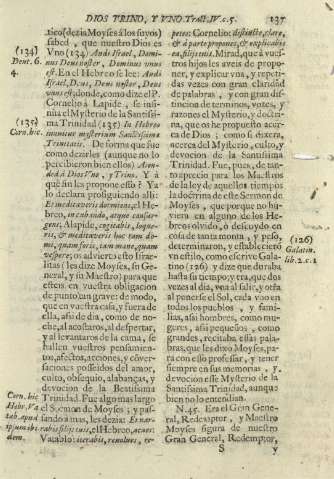 DIOS TRINO, Y VNO. Tract. IV. c. 5. 137
tico (dezia Moyses à los suyos)
sabed, que nuestro Dios es
Vno (134) Audi Israel, Dominus
Deus noster, Dominus vnus
est. En el Hebreo se lee: Audi
Israel, Deus, Deus noster, Deus
vnus est; donde, como dize el P.
Cornelio à Lapide, se insinua
el Mysterio de la Santissima
Trinidad (135) In Hebræo
innuitur mysterium Sanctissimæ
Trinitatis. De forma que fue
como dezirles (aunque no lo
percibieron bien ellos) Atended
à Dios Vno, y Trino. Y à
què fin les propone esso? Ya
lo declara prosiguiendo alli:
Et meditaveris dormiens, el Hebreo,
in cubando, atque consurgens,
Alapide, cogitabis, loqueris,
& meditaveris hæc tam domi,
quam foris, tam mane, quam
vespere; os advierto essos Israelitas
(les dize Moyses, su General,
y su Maestro) para que
esteis en vuestra obligacion
de punto en grave: de modo,
que en vuestra casa, y fuera de
ella, assi de dia, como de noche,
al acostaros, al despertar,
y al levantaros de la cama, se
hallen vuestros pensamientos,
afectos, acciones, y conversaciones
posseidos del amor,
culto, obsequio, alabanças, y
devocion de la Beatissima
Trinidad. Fue algo mas largo
el Sermon de Moyses; y passando
à mas, les dezia: Et narrabis
ea filijs tuis, el Hebreo, acues:
Vatablo: iterabis, revolues, repetes:
(134)
Deut. 6.
4.
(135)
Corn. hic.
Corn. hic
Cornelio: distinctè, clarè,
& à parte propones, & explicabis
ea filijs tuis. Mirad, que à vuestros
hijos les aveis de proponer,
y explicar vna, y repetidas
vezes con gran claridad
de palabras, y con gran distincion
de terminos, votes, y
razones el Mysterio, y doctrina,
que os he propuesto acerca
de Dios; como si dixera,
acerca del Mysterio, culto, y
devocion de la Santissima
Trinidad. Fue, pues, de tanto
aprecio para los Maestros
de la ley de aquellos tiempos
la doctrina de este Sermon de
Moyses, que porque no huviera
en alguno de los Hebreos
olvido, ò descuydo en
cosa de tanta monta, y peso,
determinaron, y establecieron
vn estilo, como escrive Galatino
(126) y dize que duraba
hasta su tiempo; y era, que dos
vezes al dia, vna al salir, y otra
al ponerse el Sol, cada vno en
todos los pueblos, y familias,
assi hombres, como mugeres,
assi pequeños, como
grandes, recitaba essas palabras,
que les dixo Moyses, para
con esso professar, y tener
siempre en sus memorias, y
devocion esse Mysterio de la
Santissima Trinidad, aunque
bien no lo entendian.
N. 45. Era el Gran General,
Redemptor, y Maestro
Moyses figura de nuestro
Gran General, Redemptor,
(126)
Galatin.
lib. 2. c. 1
S y